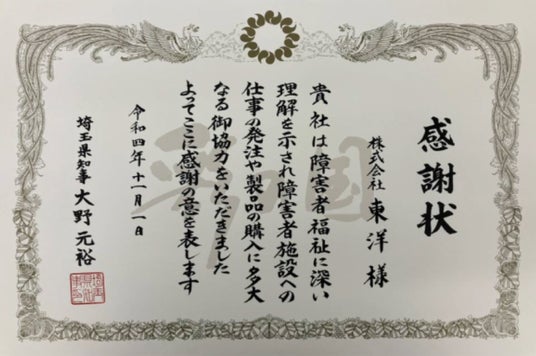 感謝状
株式会社 東洋 様
貴社は障害者福祉に深い
理解を示され障害者施設への
仕事の発注や製品の購入に多大
なる御協力をいただきました
よってここに感謝の意を表します
令和四年十一月一日
埼玉県知事 大野元裕
彩の国